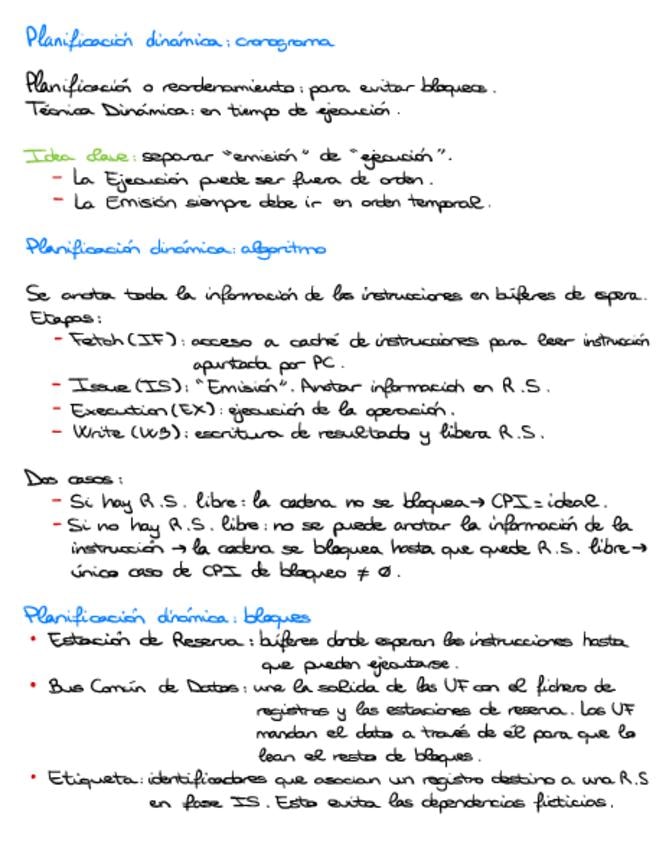 Planificación dinámica: cronograma
Planificación o reordenamiento: para evitar bloqueos.
Técnica Dinámica: en tiempo de ejecución.
Idea clave: separar "emisión" de "ejecución".
- La Ejecución puede ser fuera de orden.
- La Emisión siempre debe ir en orden temporal.
Planificación dinámica: algoritmo
Se anota toda la información de las instrucciones en búferes de espera.
Etapas:
- Fetch (IF): acceso a caché de instrucciones para leer instrucción
apuntada por PC.
- Issue (IS): "Emisión". Anotar información en R.S.
- Execution (EX): ejecución de la operación.
- Write (WB): escritura de resultado y libera R.S.
Dos casos:
- Si hay R.S. libre: la cadena no se bloquea → CPI = ideal.
- Si no hay R.S. libre: no se puede anotar la información de la
instrucción → la cadena se bloquea hasta que quede R.S. libre →
único caso de CPI de bloqueo ≠ 0.
Planificación dinámica: bloques
• Estación de Reserva: búferes donde esperan las instrucciones hasta
que pueden ejecutarse.
• Bus Común de Datos: une la salida de las UF con el fichero de
registros y las estaciones de reserva. Las UF
mandan el dato a través de él para que lo
lean el resto de bloques.
• Etiqueta: identificadores que asocian un registro destino a una R.S
en fase IS. Esto evita las dependencias ficticias.